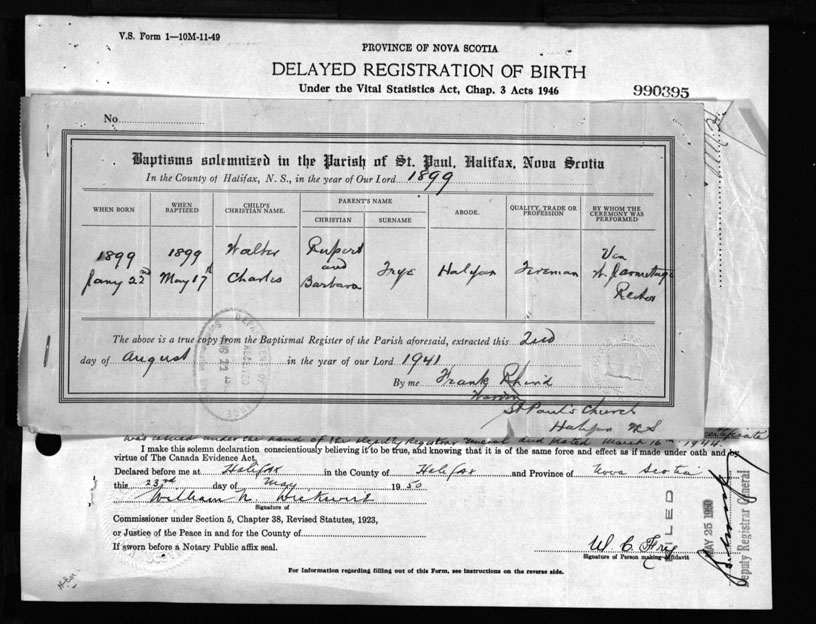 V.S. Form 1—10M-11-49
PROVINCE OF NOVA SCOTIA
DELAYED REGISTRATION OF BIRTH
Under the Vital Statistics Act, Chap. 3 Acts 1946
990395
No
Baptisms solemnized in the Parish of St. Paul, Halifax, Nova Scotia
In the County of Halifax, N. S., in the year of Our Lord 1899
WHEN BORN
WHEN BAPTIZED
CHILD'S CHRISTIAN NAME.
PARENT'S NAME
CHRISTIAN
SURNAME
ABODE.
QUALITY, TRADE OR PROFESSION
BY WHOM THE CEREMONY WAS PERFORMED
1899 Jany 22nd
1899 May 17th
Walter Charles
Rupert and Barbara
Frye
Halifax
Fireman
Ven W. J. Armitage Rector
The above is a true copy from the Baptismal Register of the Parish aforesaid, extracted this 2nd
day of August in the year of our Lord 1941
By me Frank Rhind
Warden
St Paul's Church
Halifax N S
was issued under the hand of the Deputy Registrar General and dated March 16th 1944.
I make this solemn declaration conscientiously believing it to be true, and knowing that it is of the same force and effect as if made under oath and by
virtue of The Canada Evidence Act.
Declared before me at Halifax in the County of Halifax and Province of Nova Scotia
this 23rd day of May 1950
William N. Wickwire
Signature of
Commissioner under Section 5, Chapter 38, Revised Statutes, 1923,
or Justice of the Peace in and for the County of
If sworn before a Notary Public affix seal.
W C Frye
Signature of Person making Affidavit
FILED
MAY 25 1950
Deputy Registrar General
For Information regarding filling out of this Form, see instructions on the reverse side.